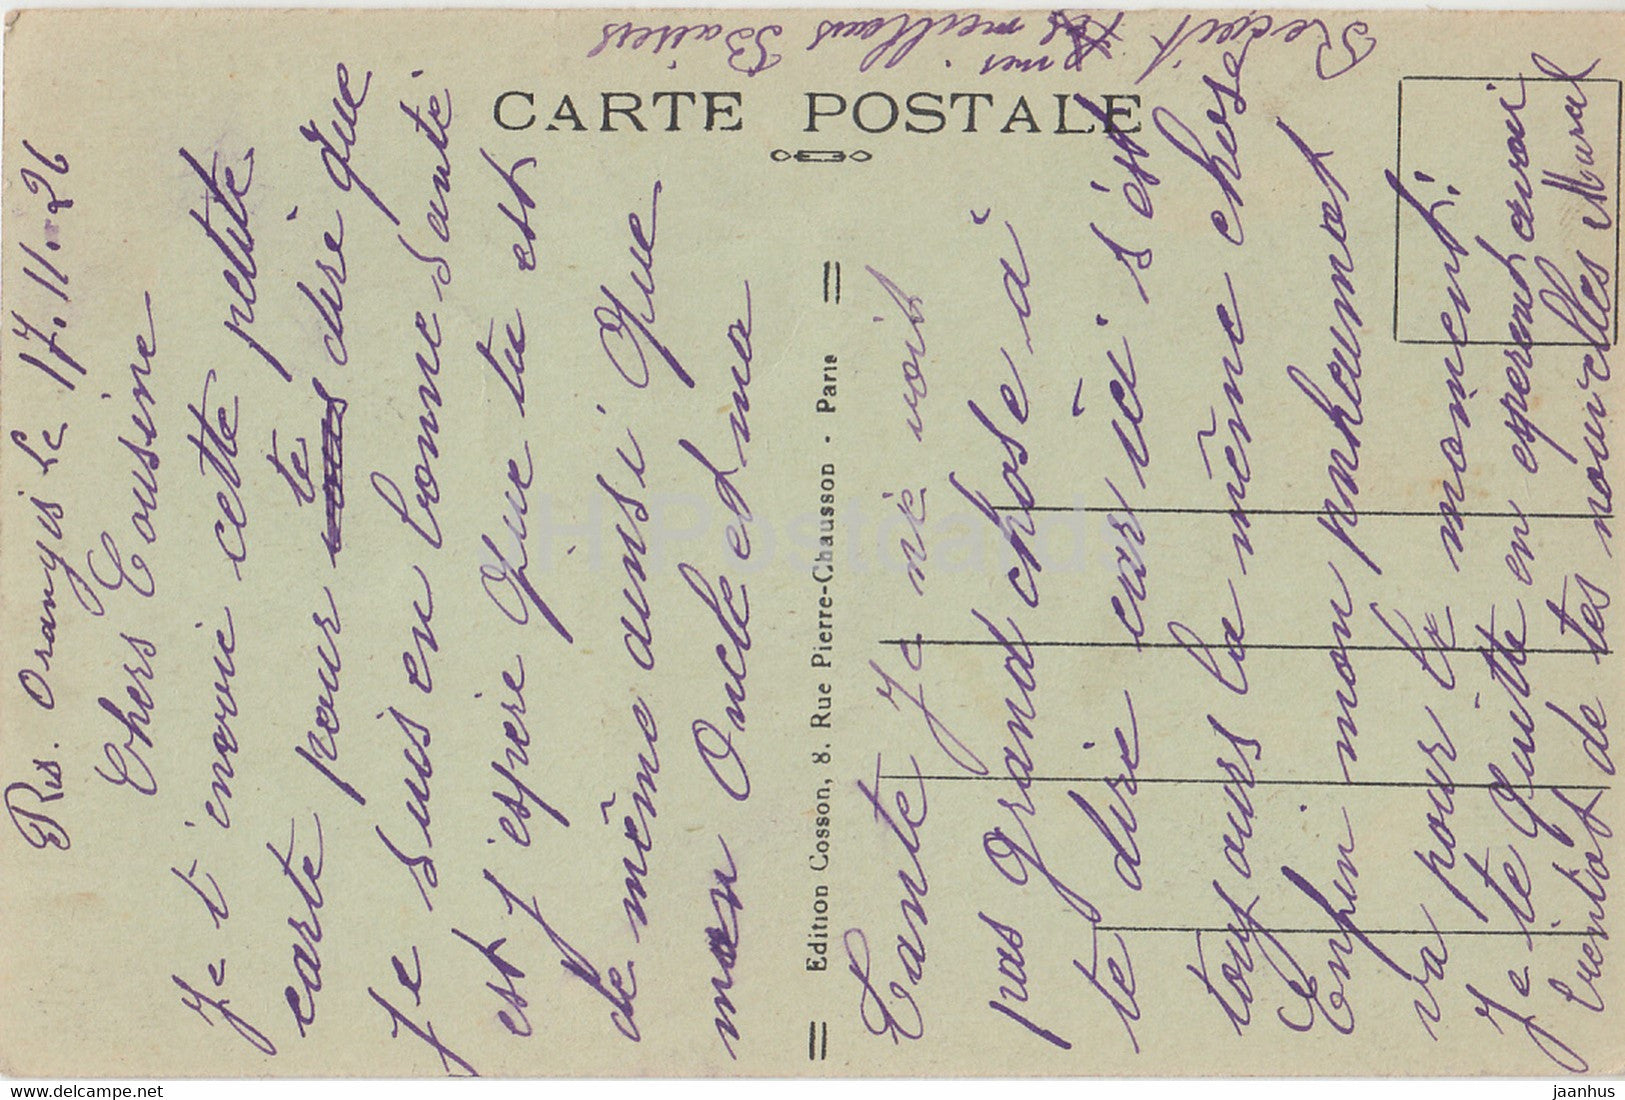 CARTE POSTALE
Ris. Orangis Le 17.11.26
Chers Cousine
Je t'envoie cette petite
carte pour te dire que
Je suis en bonne Santé
est J'espère que tu est
de même aussi que
mon Oncle et ma
Tante Je ne voit
pas grand chose à
te dire car ici s'est
toujours la même chose
Enfin mon
va pour le moment
Je te quitte en esperent avoir
bientôt de tes nouvelles
Reçoit mes meilleurs Baisers
Edition Cosson, 8. Rue Pierre-Chausson - Paris
H Postcards
https://www.delcampe.net
jaanhus